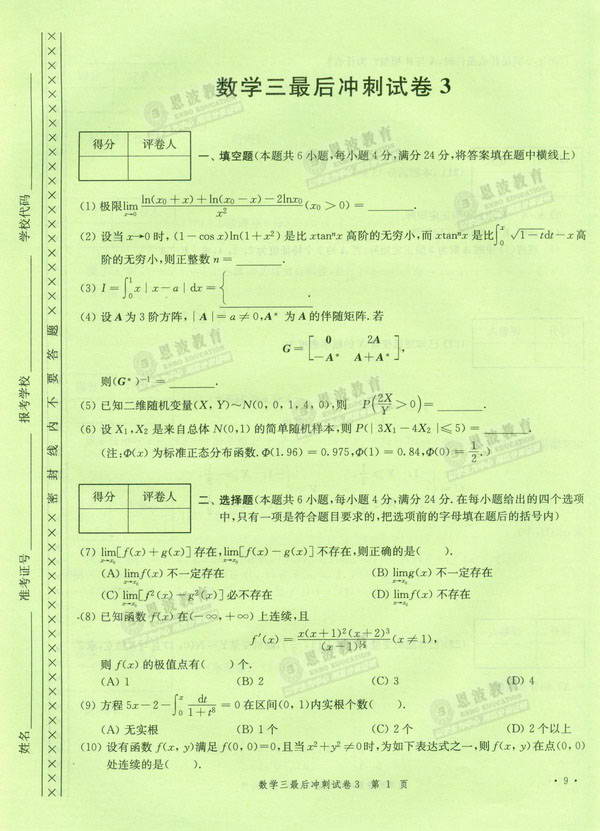 数学三最后冲刺试卷 3
得分 评卷人
一、填空题(本题共 6 小题,每小题 4 分,满分 24 分,将答案填在题中横线上)
(1) 极限lim_{x→0} \frac{ln(x₀+x)+ln(x₀-x)-2lnx₀}{x²}(x₀>0)=______.
(2) 设当 x→0 时,(1-cos x)ln(1+x²) 是比 xtanⁿx 高阶的无穷小,而 xtanⁿx 是比∫₀ˣ √(1-t)dt-x 高
阶的无穷小,则正整数 n=______.
(3) I=∫₀¹x|x-a|dx={______.
(4) 设 A 为 3 阶方阵,|A|=a≠0,A* 为 A 的伴随矩阵.若
G=[0 2A
-A* A+A*],
则(G*)⁻¹=______.
(5) 已知二维随机变量(X, Y)~N(0, 0, 1, 4, 0),则 P(2X/Y>0)=______.
(6) 设 X₁,X₂ 是来自总体 N(0,1) 的简单随机样本,则 P(|3X₁-4X₂|≤5)=______.
(注:Φ(x) 为标准正态分布函数.Φ(1.96)=0.975,Φ(1)=0.84,Φ(0)=1/2.)
得分 评卷人
二、选择题(本题共 6 小题,每小题 4 分,满分 24 分.在每小题给出的四个选项
中,只有一项是符合题目要求的,把选项前的字母填在题后的括号内)
(7) lim_{x→x₀}[f(x)+g(x)] 存在,lim_{x→x₀}[f(x)-g(x)] 不存在,则正确的是( ).
(A) lim_{x→x₀}f(x) 不一定存在 (B) lim_{x→x₀}g(x) 不一定存在
(C) lim_{x→x₀}[f²(x)-g²(x)] 必不存在 (D) lim_{x→x₀}f(x) 不存在
(8) 已知函数 f(x) 在(-∞,+∞)上连续,且
f′(x)=\frac{x(x+1)²(x+2)³}{(x-1)}(x≠1),
则 f(x) 的极值点有( )个.
(A) 1 (B) 2 (C) 3 (D) 4
(9) 方程 5x-2-∫₀ˣ\frac{dt}{1+t⁸}=0 在区间(0, 1)内实根个数( ).
(A) 无实根 (B) 1 个 (C) 2 个 (D) 2 个以上
(10) 设有函数 f(x, y)满足 f(0, 0)=0,且当 x²+y²≠0时,为如下表达式之一,则 f(x, y)在点(0, 0)
处连续的是( ).
数学三最后冲刺试卷3 第 1 页
·9·
学校代码
报考学校
准考证号
姓名
密封线内不要答题
恩波教育
ENBO EDUCATION
恩波教育
ENBO EDUCATION
恩波教育
ENBO EDUCATION
恩波教育
恩波教育
恩波教育
恩波教育
恩波教育